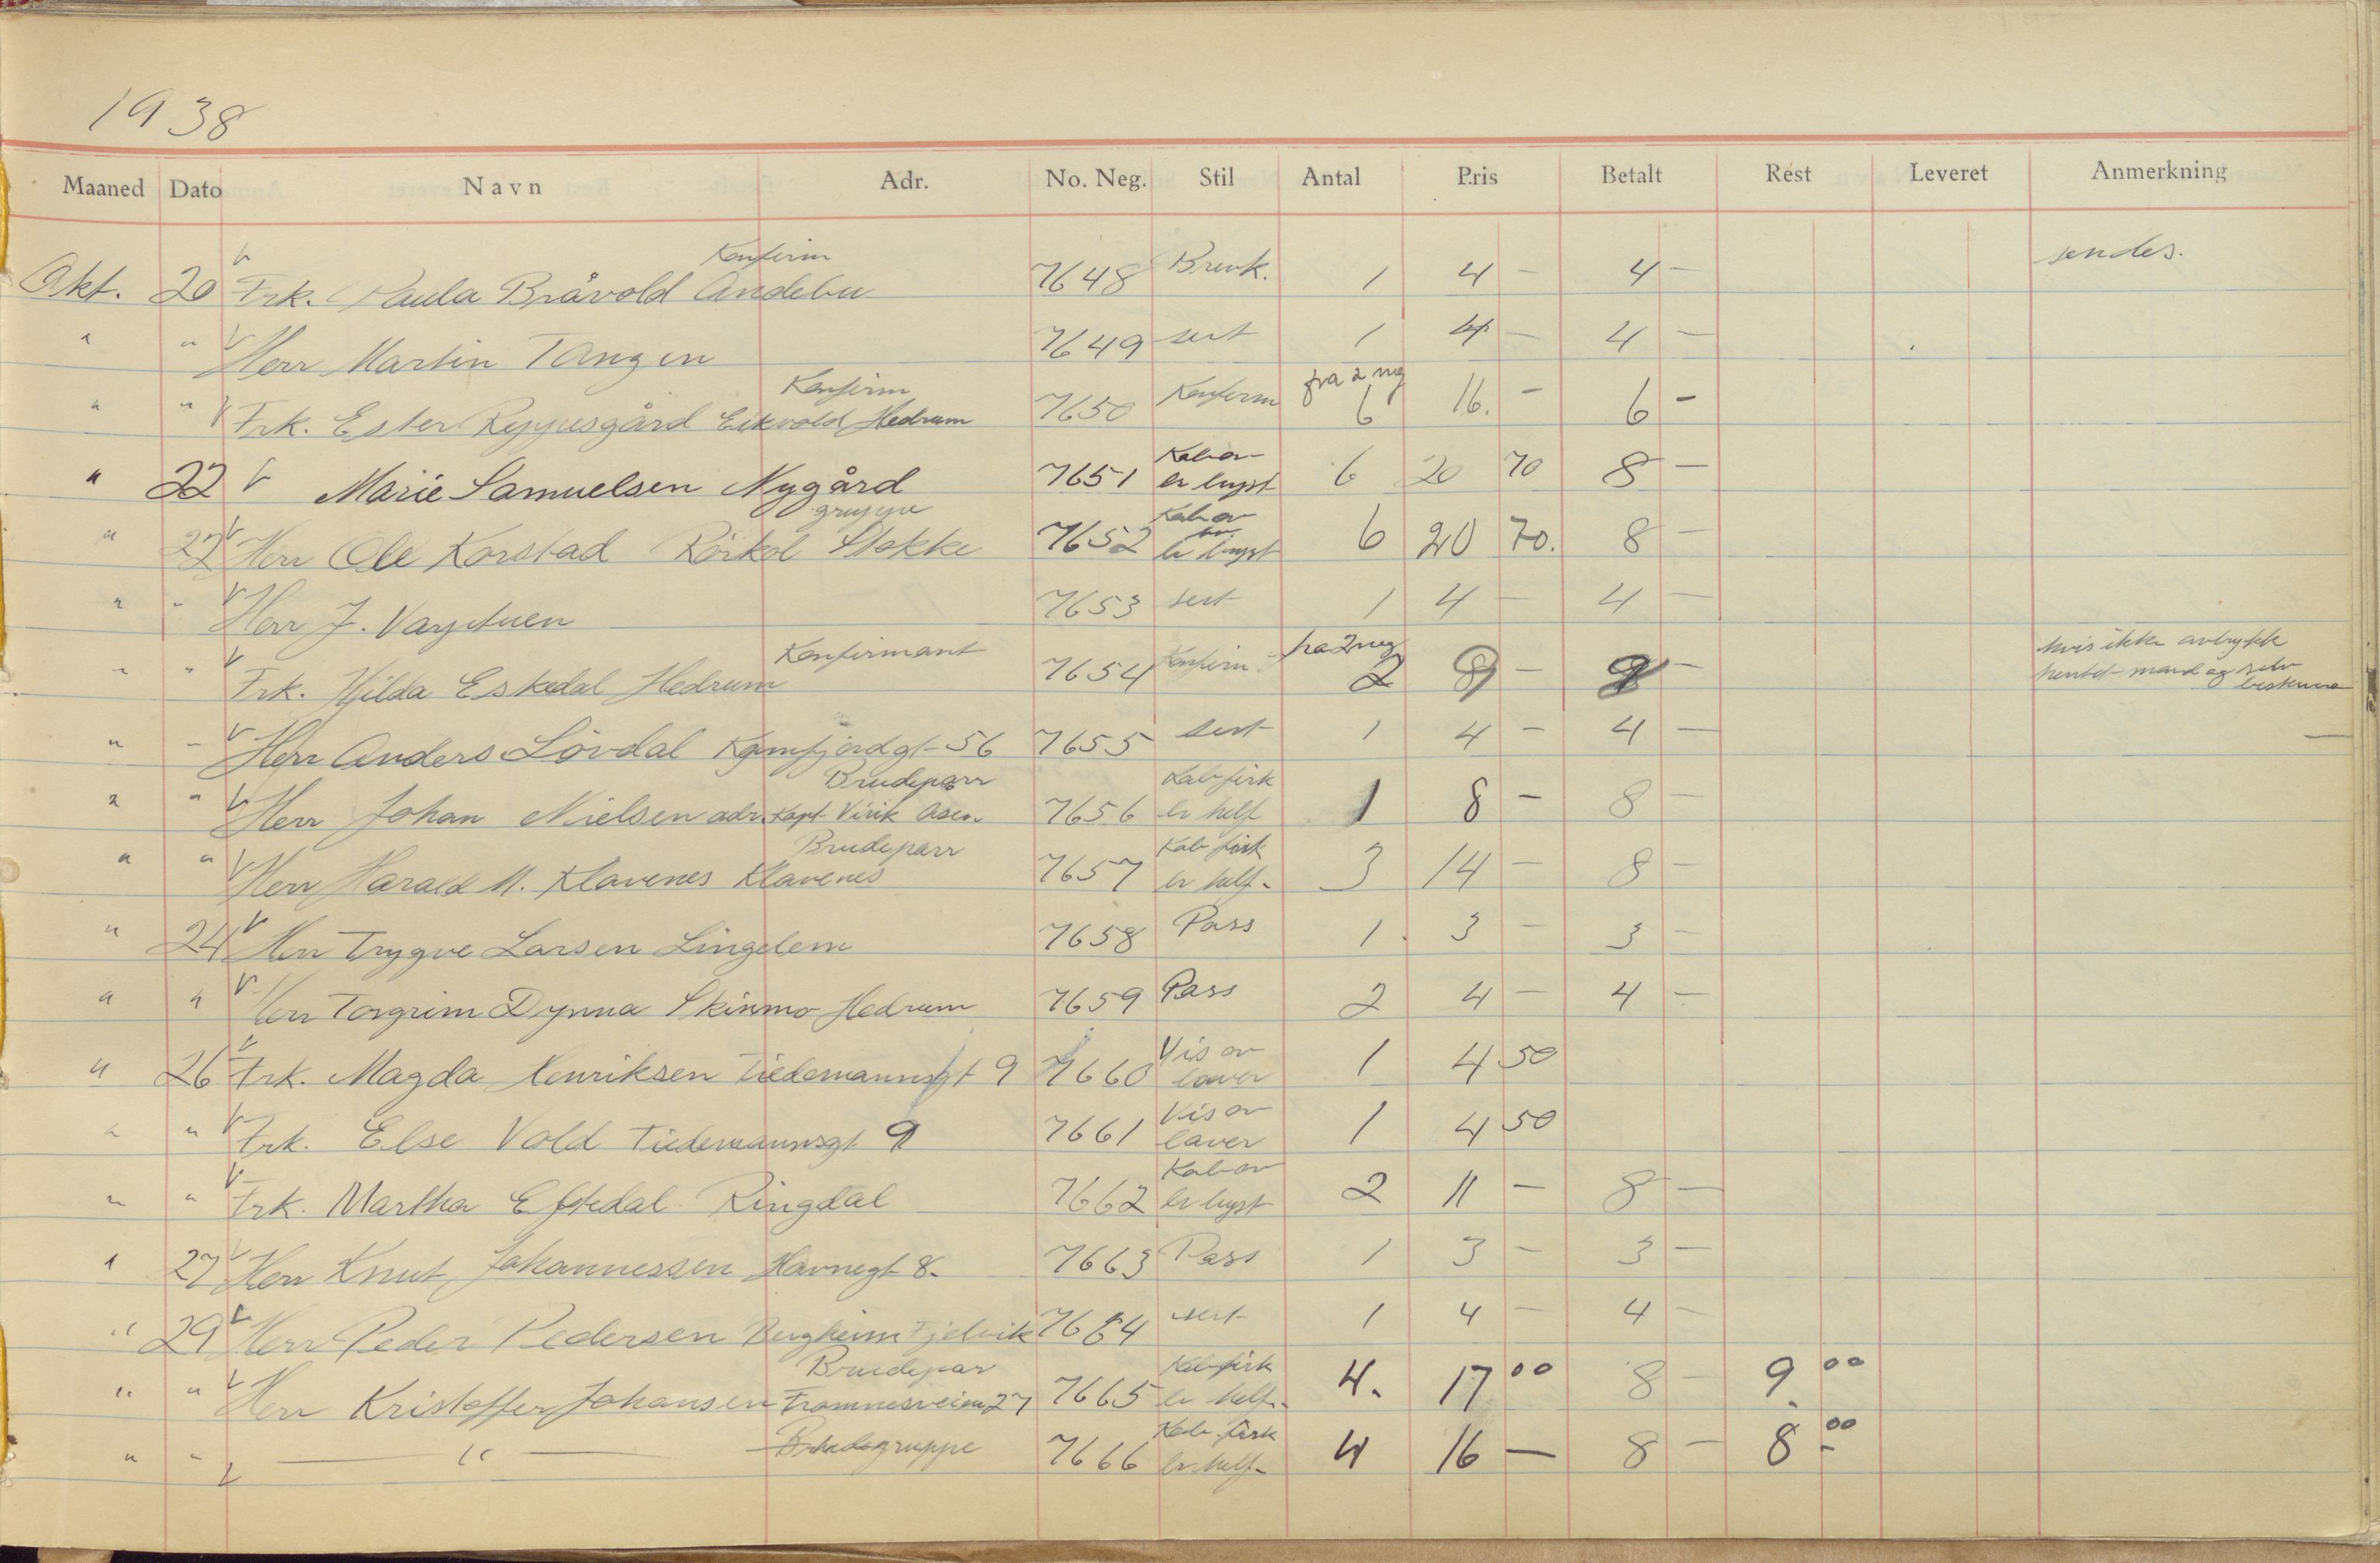 1938
Maaned Dato Navn Adr. No. Neg. Stil Antal Pris Betalt Rest Leveret Anmerkning
Konfirm
Okt. 20 Frk. Paula Bråvold Andebu 7648 Brevk. 1 4 — 4 — sendes.
" " Herr Martin Tangen 7649 sert 1 4 — 4 —
Konfirm fra 2 neg
" " Frk. Ester Ryggesgård Eikvold Hedrum 7650 Konferm 6 16. — 6 —
Kab
" 22 Marie Samuelsen Nygård 7651 6 20 70 8 —
gruppe Kab
" 22 Herr Ole Korstad Rörkol Stokke 7652 6 20 70. 8 —
" " Herr J. 7653 sert 1 4 — 4 —
Konfirmant fra 2 neg hvis ikke avtrykk
" " Frk. Hilda Eskedal Hedrum 7654 Konfirm 2 8 — 8 — hentet
" " Herr Anders Lövdal Kamfjordgt - 56 7655 sert 1 4 — 4 —
Brudeparr Kab firk
" " Herr Johan Nielsen adr. Kapt. Virik Åsen 7656 er helf 1 8 — 8 —
Brudeparr Kab firk
" " Herr Harald M. Klavenes Klavenes 7657 er helf - 3 14 — 8 —
" 24 Herr Trygve Larsen Lingelem 7658 Pass 1 . 3 — 3 —
" " Herr Torgrim Dynna Skinmo Hedrum 7659 Pass 2 4 — 4 —
Vis ov
" 26 Frk. Magda Henriksen Tiedemannsgt 9 7660 laver 1 4 50
Vis ov
" " Frk. Else Vold Tiedemannsgt 9 7661 laver 1 4 50
Kab ov
" " Frk. Martha Eftedal Ringdal 7662 2 11 — 8 —
" 27 Herr Knut Johannessen Havnegt 8. 7663 Pass 1 3 — 3 —
" 29 Herr Peder Pedersen Bergheim Fjelvik 7664 sert 1 4 — 4 —
Brudepar Kab firk
" " Herr Kristoffer Johansen Framnesveien 27 7665 er helf. 4. 17 00 8 — 9. 00
Kab. firk
" " — " — Brudegruppe 7666 er helf - 4 16 — 8 — 8 00